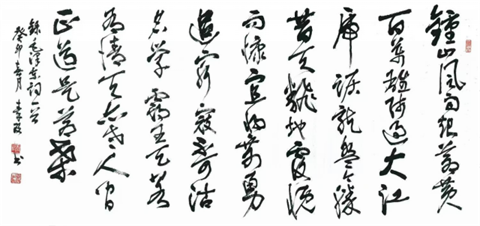 鍾山風雨起蒼黄
百萬雄師過大江
虎踞龍盤今勝
昔天翻地覆慨
而慷宜將剩勇
追窮寇不可沽
名學霸王天若
有情天亦老人间
正道是滄桑
録毛澤東詞一首
癸卯春月 书